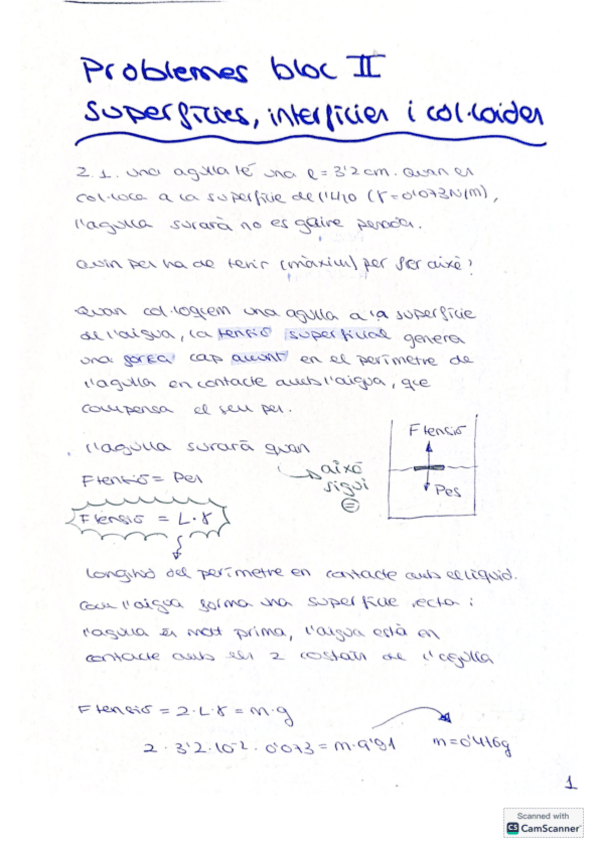 Problemes bloc II
Superfícies, interfícies i col·loides
2.1. una agulla té una l=3'2cm. Quan es
col·loca a la superfície de l'H2O (γ=0'073N/m),
l'agulla surarà no es gaire pesada.
Quin pes ha de tenir (màxim) per ser això?
Quan col·loquem una agulla a la superfície
de l'aigua, la tensió superficial genera
una força cap amunt en el perímetre de
l'agulla en contacte amb l'aigua, que
compensa el seu pes.
l'agulla surarà quan
Ftensió = Pes
això
sigui
=
Ftensió = L·γ
Ftensió
Pes
longitud del perímetre en contacte amb el líquid.
Com l'aigua forma una superfície recta i
l'agulla és molt prima, l'aigua està en
contacte amb els 2 costats de l'agulla
Ftensió = 2·L·γ = m·g
2·3'2·10-2·0'073=m·9'81
m=0'476g
1
Scanned with
CS CamScanner